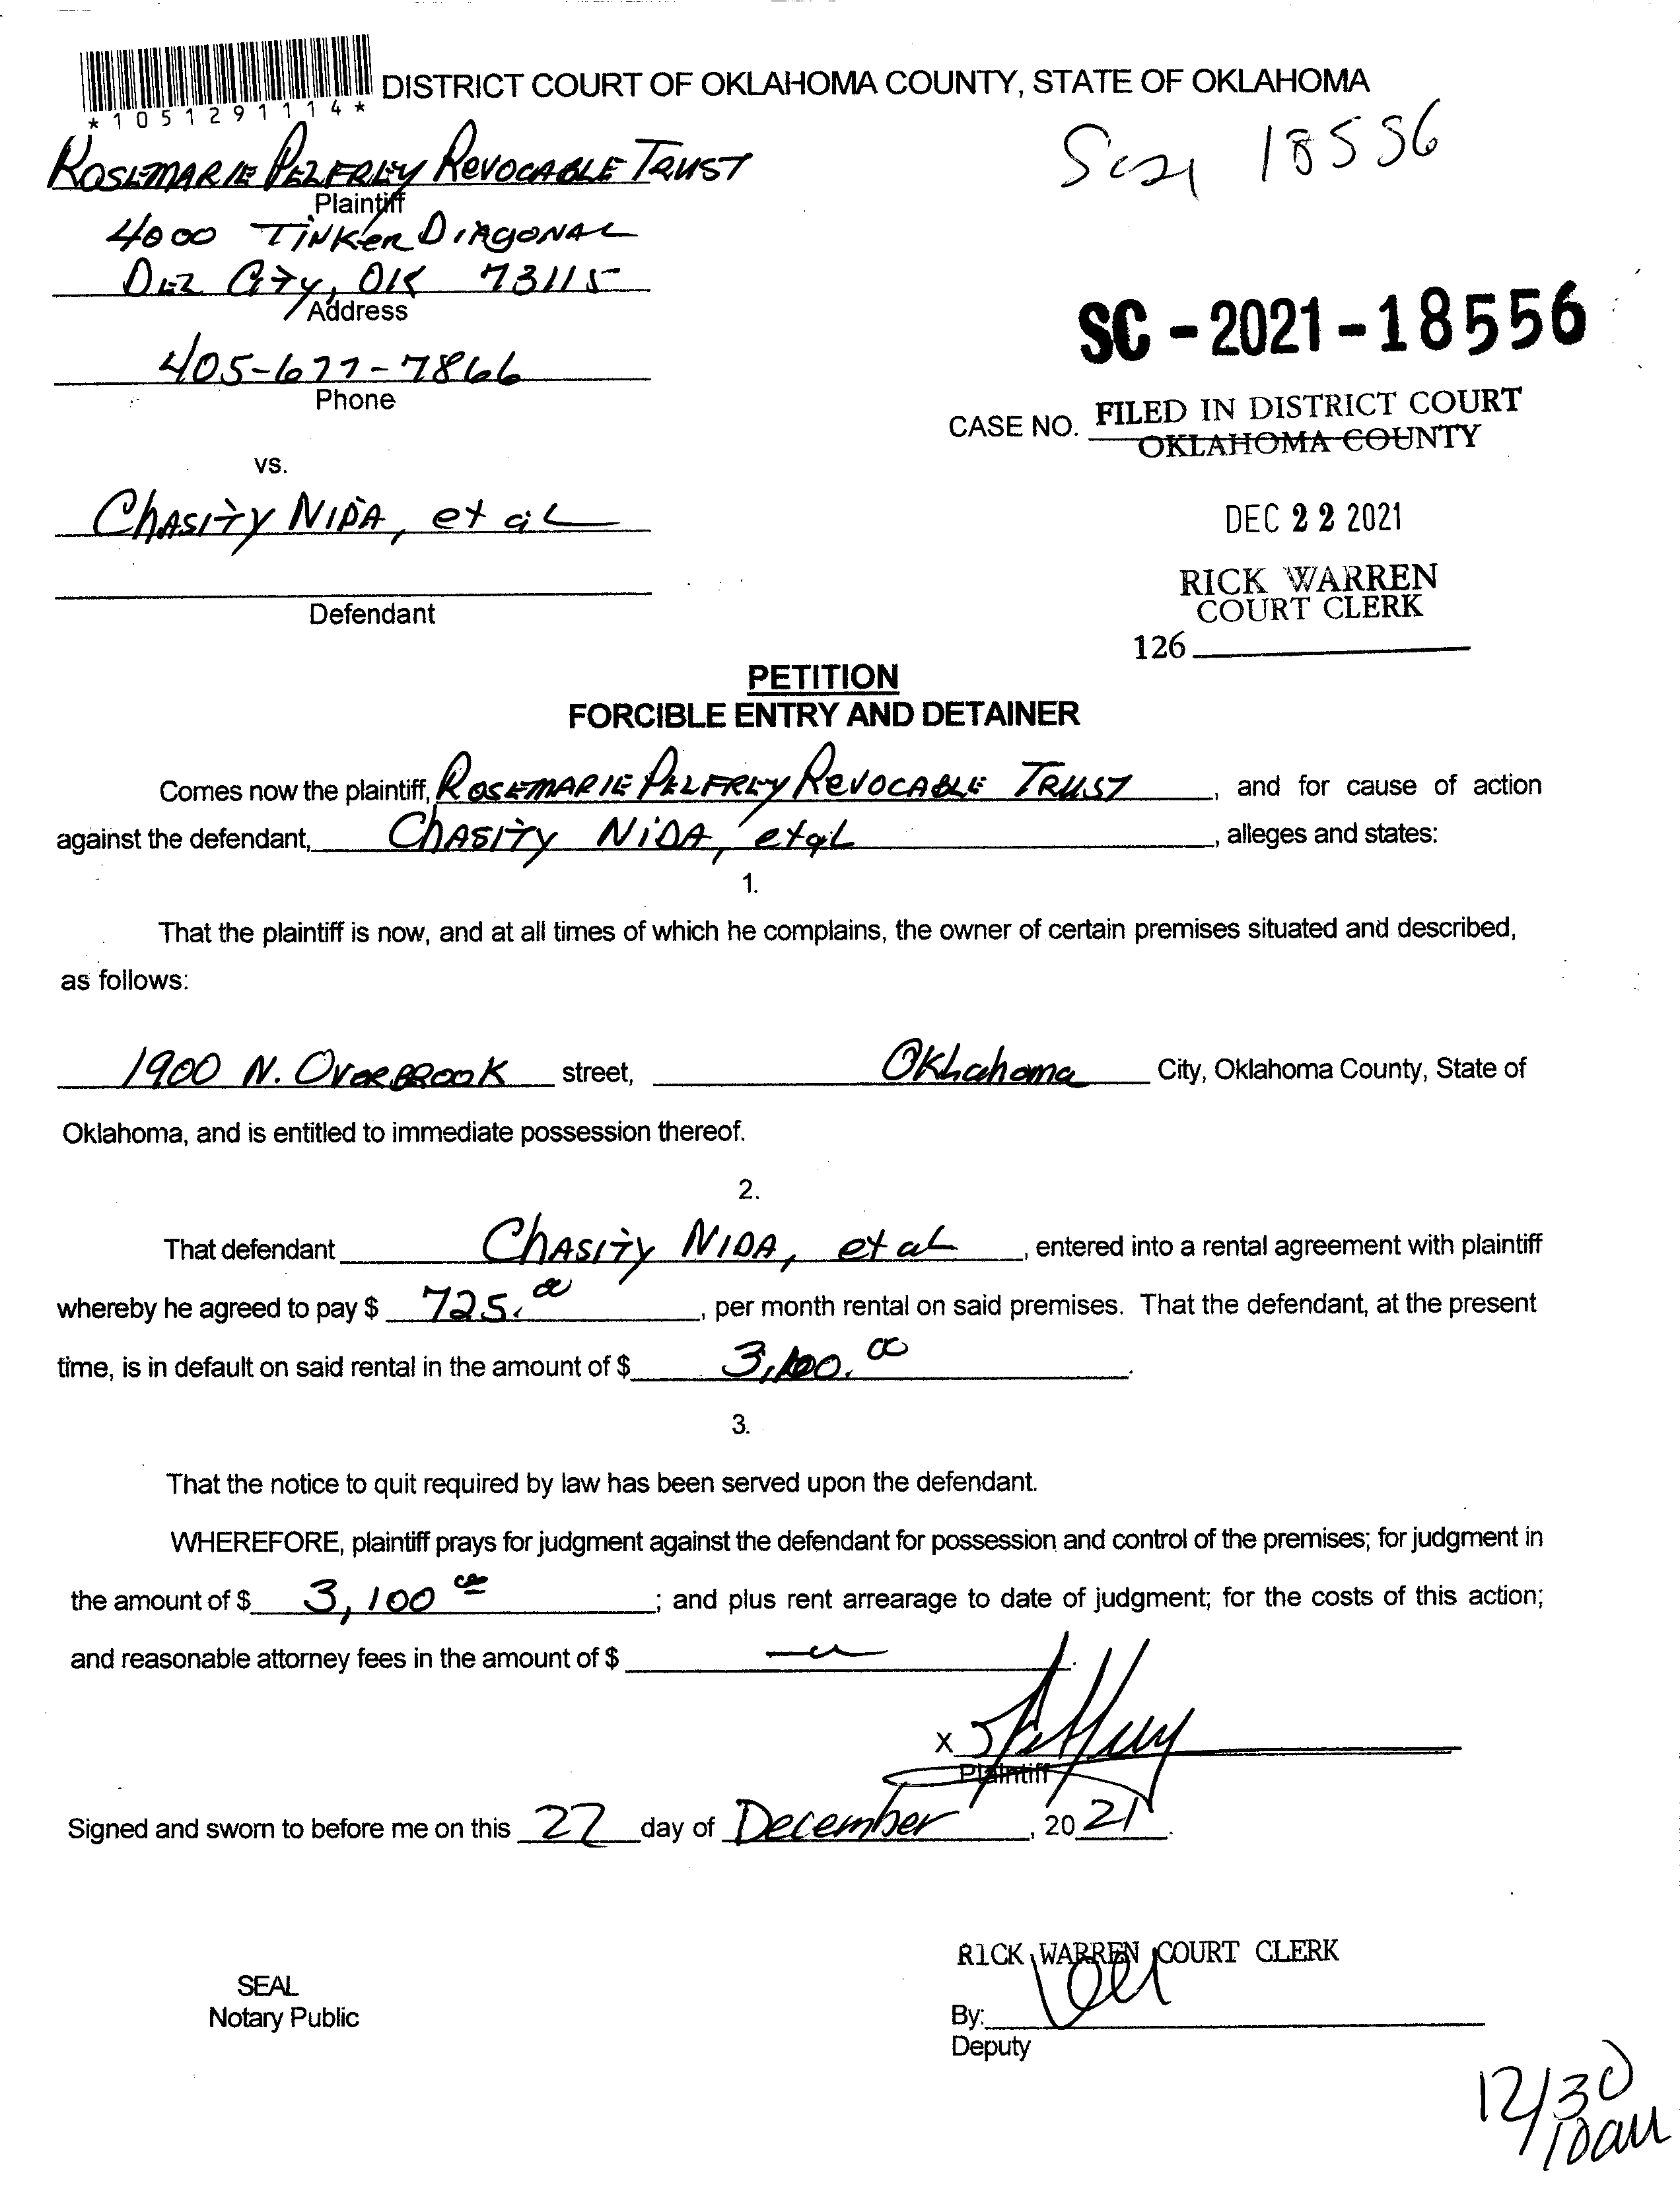 *1051291114*
DISTRICT COURT OF OKLAHOMA COUNTY, STATE OF OKLAHOMA
SC21 18556
ROSEMARIE PELFREY REVOCABLE TRUST
Plaintiff
4000 TINKER DIAGONAL
DEL CITY, OK 73115
Address
405-677-7866
Phone
SC-2021-18556
CASE NO. FILED IN DISTRICT COURT
OKLAHOMA COUNTY
vs.
CHASITY NIDA, et al
Defendant
DEC 22 2021
RICK WARREN
COURT CLERK
126
PETITION
FORCIBLE ENTRY AND DETAINER
Comes now the plaintiff, ROSEMARIE PELFREY REVOCABLE TRUST, and for cause of action
against the defendant, CHASITY NIDA, et al, alleges and states:
1.
That the plaintiff is now, and at all times of which he complains, the owner of certain premises situated and described,
as follows:
1900 N. OVERBROOK street, Oklahoma City, Oklahoma County, State of
Oklahoma, and is entitled to immediate possession thereof.
2.
That defendant CHASITY NIDA, et al, entered into a rental agreement with plaintiff
whereby he agreed to pay $ 725.00, per month rental on said premises. That the defendant, at the present
time, is in default on said rental in the amount of $ 3,100.00.
3.
That the notice to quit required by law has been served upon the defendant.
WHEREFORE, plaintiff prays for judgment against the defendant for possession and control of the premises; for judgment in
the amount of $ 3,100 00; and plus rent arrearage to date of judgment; for the costs of this action;
and reasonable attorney fees in the amount of $
X
Plaintiff
Signed and sworn to before me on this 22 day of December, 2021.
RICK WARREN COURT CLERK
SEAL
Notary Public
By:
Deputy
12/30
10am